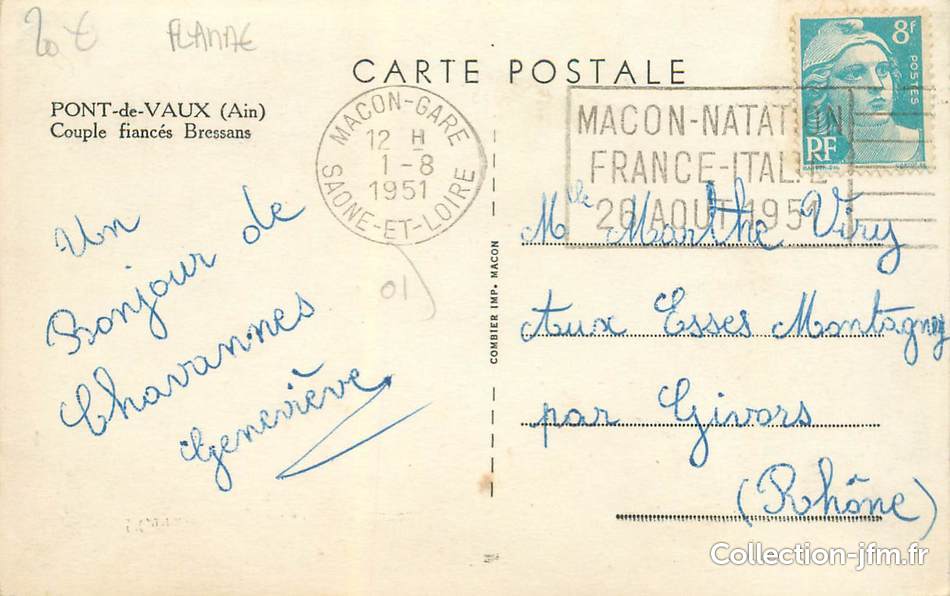 20 €
FLAMME
CARTE POSTALE
8f
POSTES
RF
PONT-de-VAUX (Ain)
Couple fiancés Bressans
MACON-GARE
12 H
1-8
1951
SAONE-ET-LOIRE
MACON-NATATION
FRANCE-ITALIE
26 AOUT 1951
Un
Bonjour de
Chavannes
Geneviève
01
COMBIER IMP. MACON
Mlle Marthe Viry
Aux Esses Montagny
par Givors
(Rhône)
Collection-jfm.fr